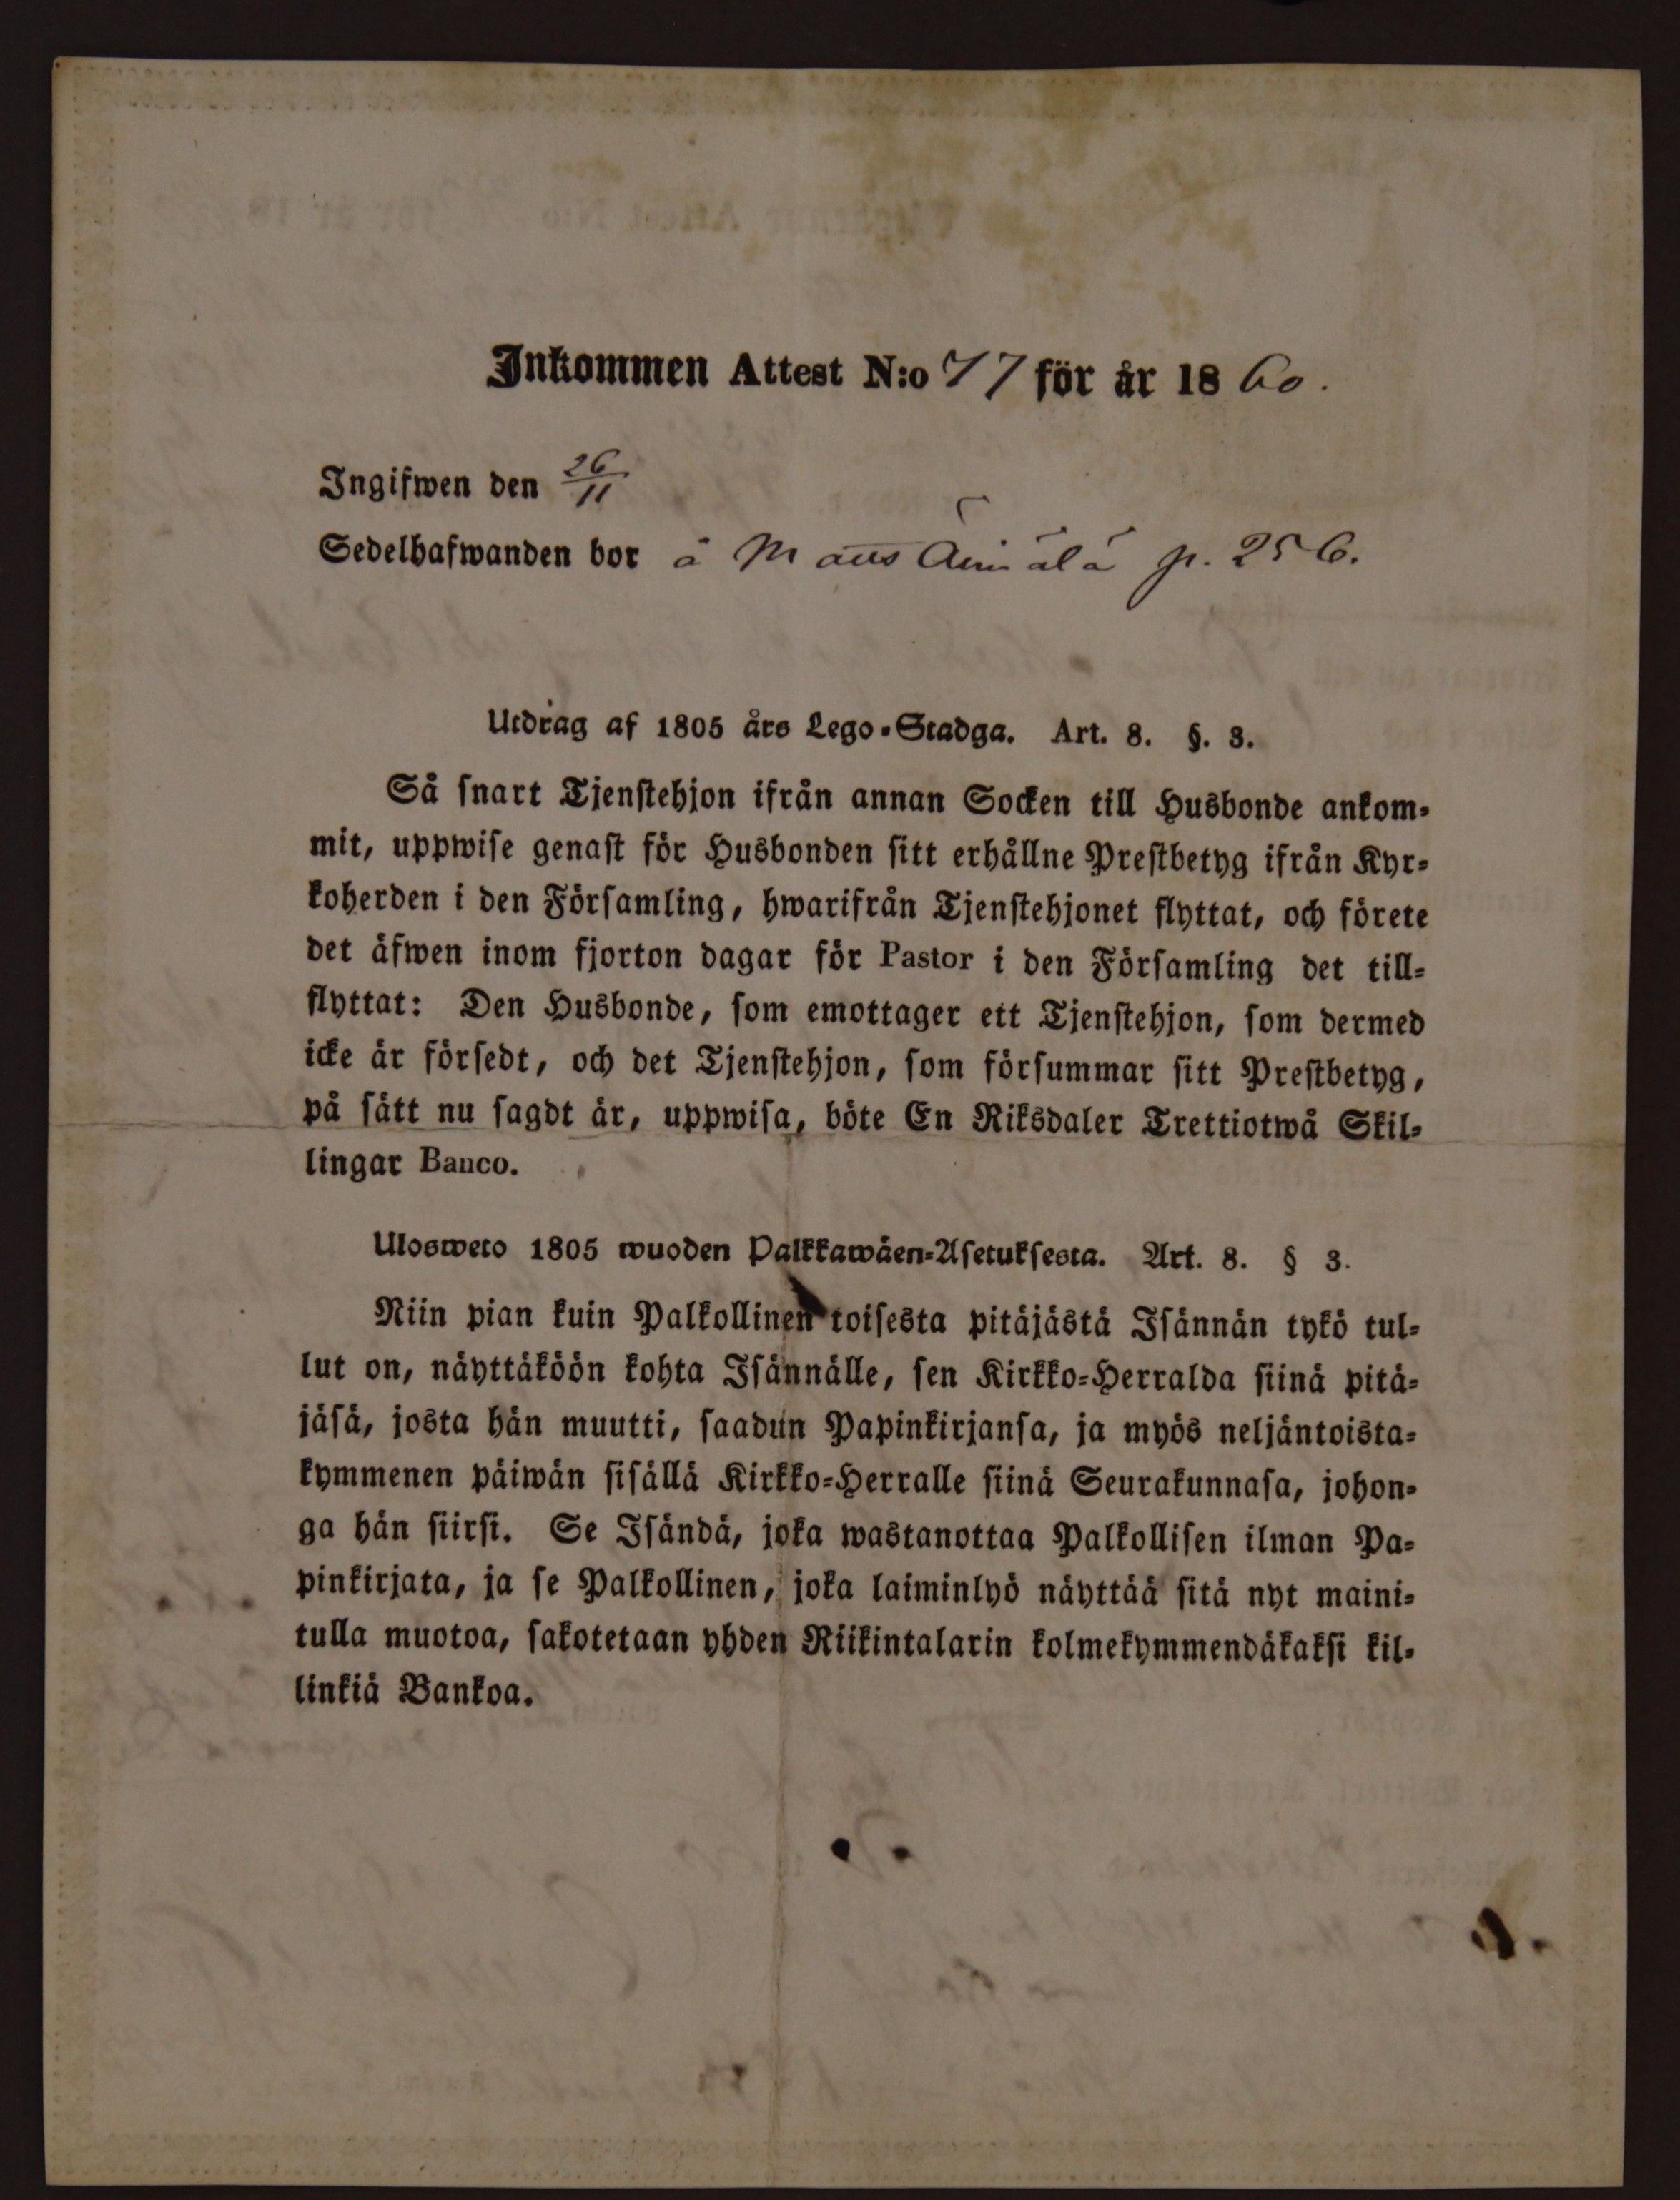 Inkommen Attest N:o 77 för år 1860.
Ingifwen den 26/11
Sedelhafwanden bor å Maus Äimälä p. 256.
Utdrag af 1805 års Lego-Stadga. Art. 8. §. 3.
Så snart Tjenstehjon ifrån annan Socken till Husbonde ankom-
mit, uppwise genast för Husbonden sitt erhållne Prestbetyg ifrån Kyr-
koherden i den Församling, hwarifrån Tjenstehjonet flyttat, och förete
det äfwen inom fjorton dagar för Pastor i den Församling det till-
flyttat: Den Husbonde, som emottager ett Tjenstehjon, som dermed
icke är försedt, och det Tjenstehjon, som försummar sitt Prestbetyg,
på sätt nu sagdt är, uppwisa, böte En Riksdaler Trettiotwå Skil-
lingar Banco.
Ulosweto 1805 wuoden Palkkawäen-Asetuksesta. Art. 8. § 3.
Niin pian kuin Palkollinen toisesta pitäjästä Isännän tykö tul-
lut on, näyttäköön kohta Isännälle, sen Kirkko-Herralda siinä pitä-
jäsä, josta hän muutti, saadun Papinkirjansa, ja myös neljäntoista-
kymmenen päiwän sisällä Kirkko-Herralle siinä Seurakunnasa, johon-
ga hän siirsi. Se Isändä, joka wastanottaa Palkollisen ilman Pa-
pinkirjata, ja se Palkollinen, joka laiminlyö näyttää sitä nyt maini-
tulla muotoa, sakotetaan yhden Riikintalarin kolmekymmendäkaksi kil-
linkiä Bankoa.